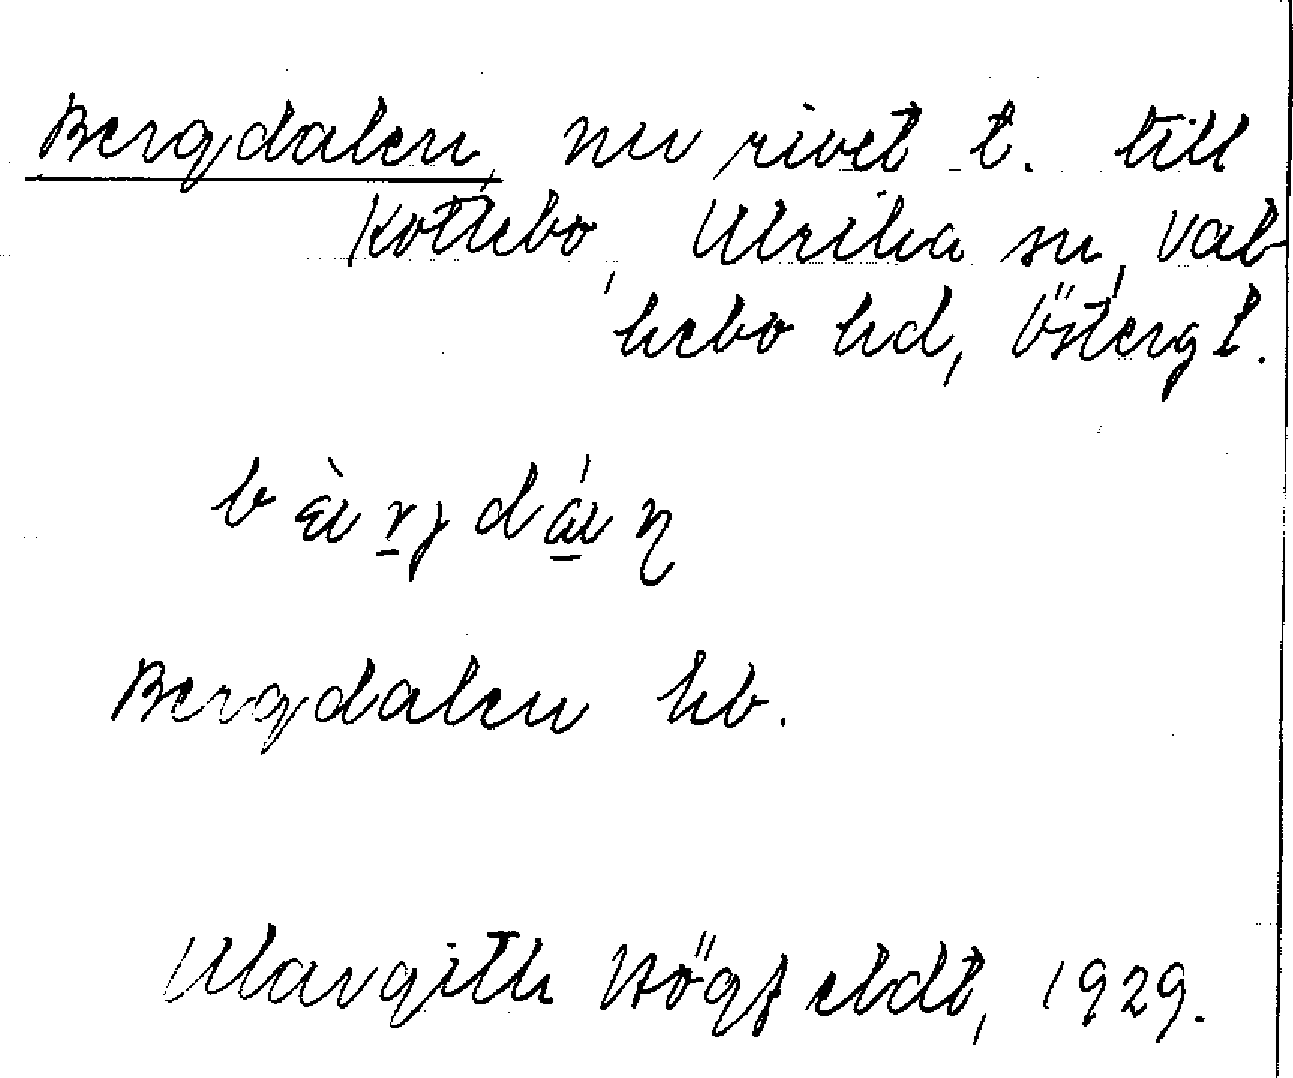 Bergdalen, nu rivet t. till
Kottebo, Ulrika sn, Val-
kebo hd, Östergl.
Bergdalen kb.
Margith Högfeldt, 1929.